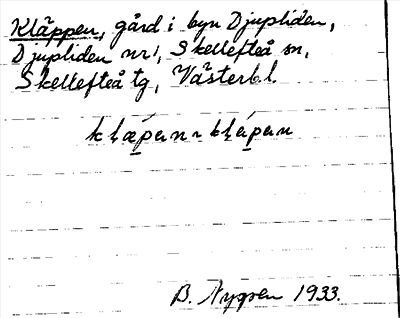 Kläppen, gård i byn Djupliden,
Djupliden nr 1, Skellefteå sn,
Skellefteå tg, Västerb. l.
B. Nygren 1933.